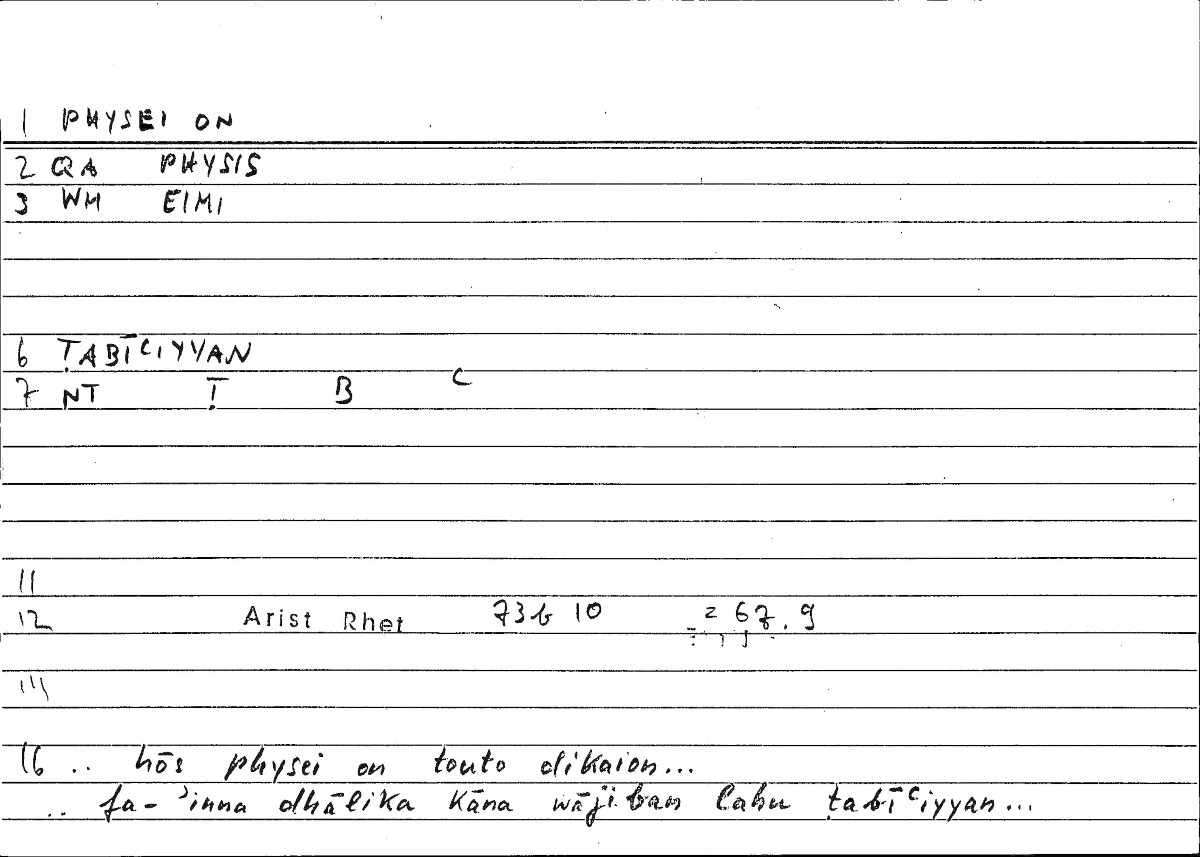 1 PHYSEI ON
2 QA PHYSIS
3 WM EIMI
6 ṬABĪʿIYYAN
7 NT Ṭ B ʿ
11
12 Arist Rhet 73b 10 = 67.9
14
16 .. hōs physei on touto dikaion...
.. fa-ʾinna dhālika kāna wājiban lahu ṭabīʿiyyan...